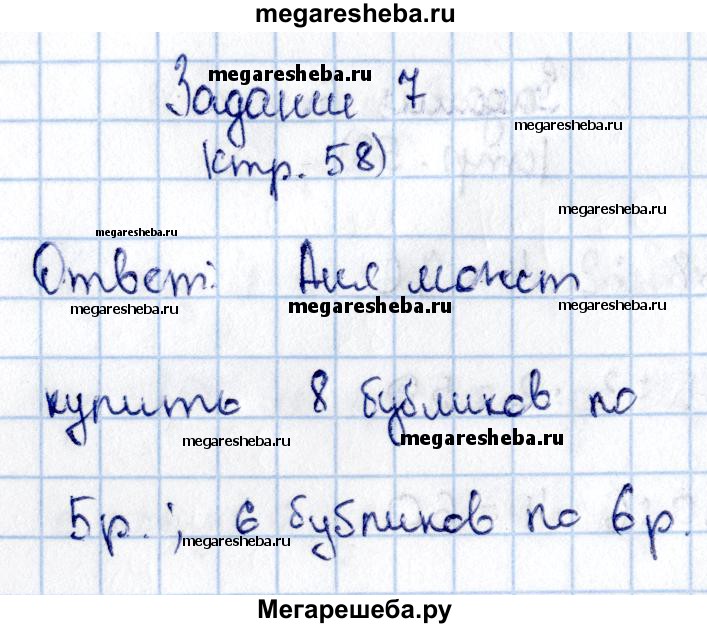 megaresheba.ru
megaresheba.ru
Задание 7
megaresheba.ru
(стр. 58)
megaresheba.ru
megaresheba.ru
Ответ: Аня может
megaresheba.ru megaresheba.ru megaresheba.ru
купить 8 бубликов по
megaresheba.ru megaresheba.ru
5р.; 6 бубликов по 6р.
megaresheba.ru
Мегарешеба.ру